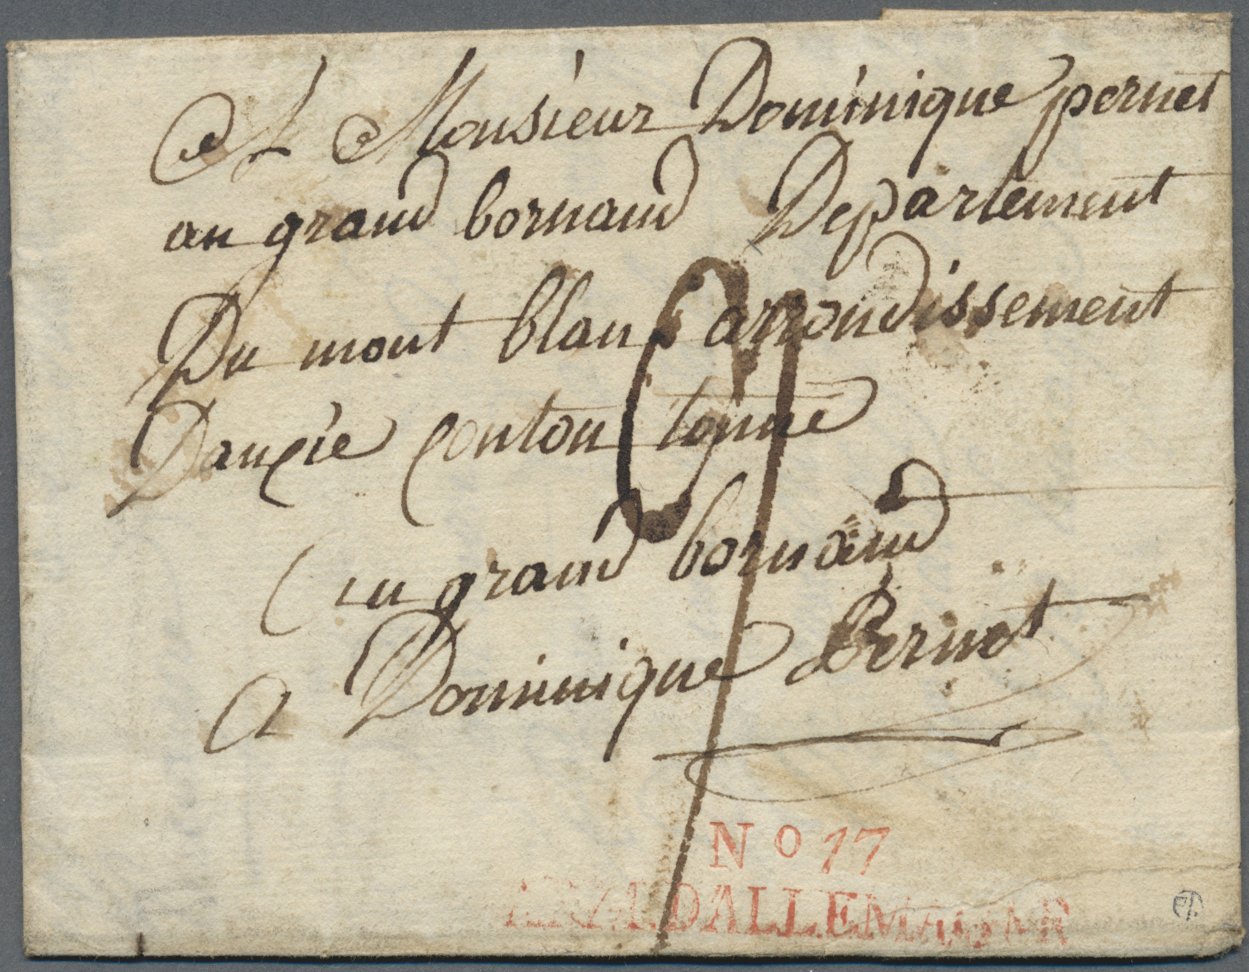 A Monsieur Dominique pernet
au grand bornand Departement
Du mont blan arrondissement
Danēie Conton tonne
au grand bornand
a Dominique Pernet
No 17
DALLEMAGNE